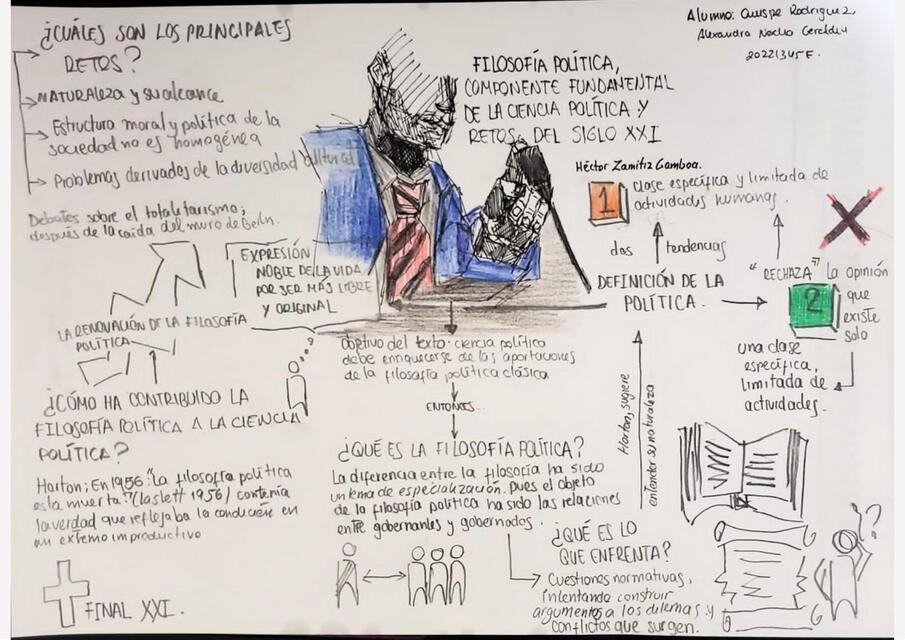 ¿CUÁLES SON LOS PRINCIPALES
RETOS?
NATURALEZA y su alcance
Estructura moral y política de la
sociedad no es homogénea
Problemas derivados de la diversidad cultural
Debates sobre el totalitarismo;
después de la caída del muro de Berlín.
EXPRESIÓN
NOBLE DE LA VIDA
POR SER MÁS LIBRE
Y ORIGINAL
LA RENOVACIÓN DE LA FILOSOFÍA
POLÍTICA
¿CÓMO HA CONTRIBUIDO LA
FILOSOFÍA POLÍTICA A LA CIENCIA
POLÍTICA?
Horton; En 1956 "La filosofía política
esta muerta" (Laslett 1956) contenía
la verdad que reflejaba la condición en
un extremo improductivo
FINAL XXI.
Alumno: Quispe Rodriguez,
Alexandra Geraldin
FILOSOFÍA POLÍTICA,
COMPONENTE FUNDAMENTAL
DE LA CIENCIA POLÍTICA Y
RETOS DEL SIGLO XXI
Héctor Zamitiz Gamboa.
1 clase específica y limitada de
actividades humanas.
dos tendencias
DEFINICIÓN DE LA
POLÍTICA.
"RECHAZA" la opinión
2 que
existe
solo
una clase
específica,
limitada de
actividades.
Horton, sugiere
entender su naturaleza
Objetivo del texto: ciencia política
debe enriquecerse de las aportaciones
de la filosofía política clásica
ENTONCES...
¿QUÉ ES LA FILOSOFÍA POLÍTICA?
La diferencia entre la filosofía ha sido
un tema de especialización. Pues el objeto
de la filosofía política ha sido las relaciones
entre gobernantes y gobernados.
¿QUÉ ES LO
QUE ENFRENTA?
Cuestiones normativas,
intentando construir
argumentos a los dilemas y
conflictos que surgen.
?